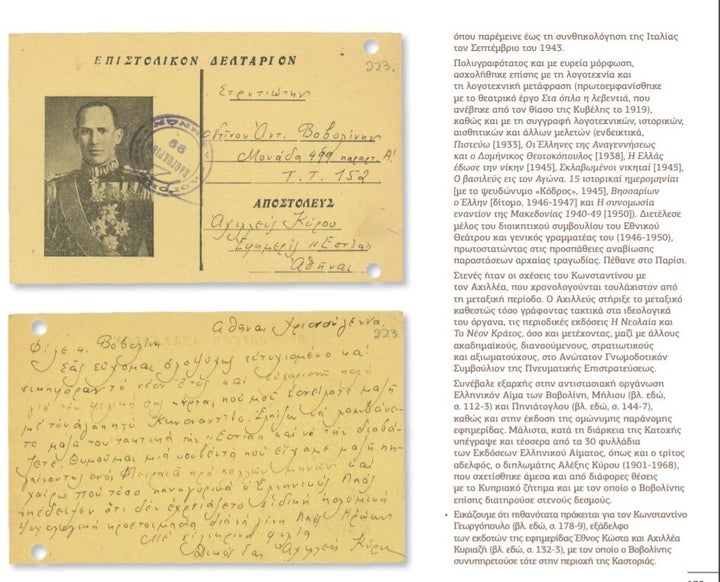 ΕΠΙΣΤΟΛΙΚΟΝ ΔΕΛΤΑΡΙΟΝ
223.
Στρατιώτην
Ντίνον Αντ. Βοβολίνην
Μονάδα 499 παραρτ. Α!
Τ.Τ. 152
ΑΠΟΣΤΟΛΕΥΣ
Αχιλλεύς Κύρου
Εφημερίς "Εστία"
Αθήναι
99
Αθήναι Χριστούγεννα
223
Φίλε κ. Βοβολίνη
Σας εύχομαι ολοψύχως ευτυχισμένο και
νικηφόρον το νέον έτος και ευχαριστώ πολύ
για την φιλική σας κάρτα, που μου εστείλατε μαζή
με τον αγαπητό Κωνσταντίνο. Ελπίζω να λαμβάνε-
τε μαζή του τακτικά την "Εστίαν" και να την διαβά-
ζετε. Θυμούμαι μιά κουβέντα που είχαμε μαζή πη-
γαίνοντας στού πρό πολλών μηνών και
χαίρω πού τόσο πανηγυρικά ο Ελληνικός Λαός
απέδειξεν ότι δεν εχρειάζετο ειδική πολεμική
ψυχολογική προετοιμασία διά να γίνη Λαός Ηρώων
Με ειλικρινή φιλία
Δικός σας Αχιλλεύς Κύρου
όπου παρέμεινε έως τη συνθηκολόγηση της Ιταλίας
τον Σεπτέμβριο του 1943.
Πολυγραφότατος και με ευρεία μόρφωση,
ασχολήθηκε επίσης με τη λογοτεχνία και
τη λογοτεχνική μετάφραση (πρωτοεμφανίσθηκε
με το θεατρικό έργο Στα όπλα η λεβεντιά, που
ανέβηκε από τον θίασο της Κυβέλης το 1919),
καθώς και με τη συγγραφή λογοτεχνικών, ιστορικών,
αισθητικών και άλλων μελετών (ενδεικτικά,
Πιστεύω [1933], Οι Έλληνες της Αναγεννήσεως
και ο Δομήνικος Θεοτοκόπουλος [1938], Η Ελλάς
έδωσε την νίκην [1945], Σκλαβωμένοι νικηταί [1945],
Ο βασιλεύς εις τον Αγώνα. 15 ιστορικαί ημερομηνίαι
[με το ψευδώνυμο «Κόδρος», 1945], Βησσαρίων
ο Έλλην [δίτομο, 1946-1947] και Η συνομωσία
εναντίον της Μακεδονίας 1940-49 [1950]). Διετέλεσε
μέλος του διοικητικού συμβουλίου του Εθνικού
Θεάτρου και γενικός γραμματέας του (1946-1950),
πρωτοστατώντας στις προσπάθειες αναβίωσης
παραστάσεων αρχαίας τραγωδίας. Πέθανε στο Παρίσι.
Στενές ήταν οι σχέσεις του Κωνσταντίνου με
τον Αχιλλέα, που χρονολογούνται τουλάχιστον από
τη μεταξική περίοδο. Ο Αχιλλεύς στήριξε το μεταξικό
καθεστώς τόσο γράφοντας τακτικά στα ιδεολογικά
του όργανα, τις περιοδικές εκδόσεις Η Νεολαία και
Το Νέον Κράτος, όσο και μετέχοντας, μαζί με άλλους
ακαδημαϊκούς, διανοούμενους, στρατιωτικούς
και αξιωματούχους, στο Ανώτατον Γνωμοδοτικόν
Συμβούλιον της Πνευματικής Επιστρατεύσεως.
Συνέβαλε εξαρχής στην αντιστασιακή οργάνωση
Ελληνικόν Αίμα των Βοβολίνη, Μήλιου (βλ. εδώ,
σ. 112-3) και Πηνιάτογλου (βλ. εδώ, σ. 144-7),
καθώς και στην έκδοση της ομώνυμης παράνομης
εφημερίδας. Μάλιστα, κατά τη διάρκεια της Κατοχής
υπέγραψε και τέσσερα από τα 30 φυλλάδια
των Εκδόσεων Ελληνικού Αίματος, όπως και ο τρίτος
αδελφός, ο διπλωμάτης Αλέξης Κύρου (1901-1968),
που σχετίσθηκε άμεσα και από διάφορες θέσεις
με το Κυπριακό ζήτημα και με τον οποίο ο Βοβολίνης
επίσης διατηρούσε στενούς δεσμούς.
• Εικάζουμε ότι πιθανότατα πρόκειται για τον Κωνσταντίνο
Γεωργόπουλο (βλ. εδώ, σ. 178-9), εξάδελφο
των εκδοτών της εφημερίδας Έθνος Κώστα και Αχιλλέα
Κυριαζή (βλ. εδώ, σ. 132-3), με τον οποίο ο Βοβολίνης
συνυπηρετούσε τότε στην περιοχή της Καστοριάς.